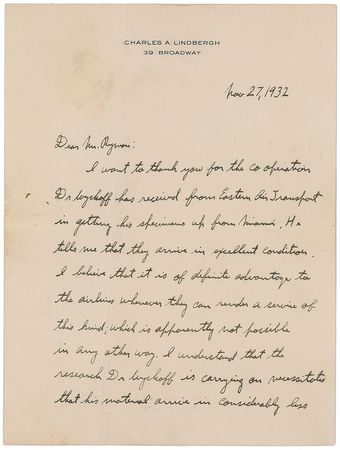 CHARLES A. LINDBERGH
39 BROADWAY
Nov 27, 1932
Dear Mr.
I want to thank you for the cooperation
Dr Wyckoff has received from Eastern Air Transport
in getting his specimens up from Miami. He
tells me that they arrive in excellent condition.
I believe that it is of definite advantage to
the airlines whenever they can render a service of
this kind, which is apparently not possible
in any other way. I understand that the
research Dr Wyckoff is carrying on necessitates
that his material arrive in considerably less